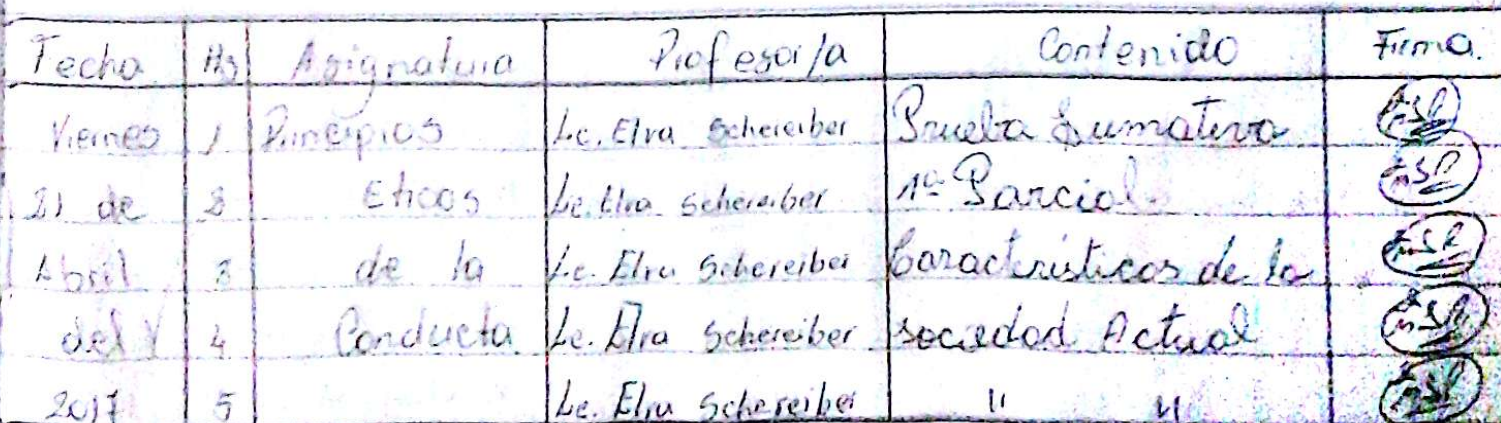 Fecha Hs Asignatura Profesor/a Contenido Firma.
Viernes 1 Principios Lc. Elva Schereiber Prueba Sumativa
21 de 2 Eticos Lc. Elva Schereiber 1º Parcial
Abril 3 de la Lc. Elva Schereiber Características de la
del 4 Conducta Lc. Elva Schereiber sociedad Actual
2017 5 Lc. Elva Schereiber " "